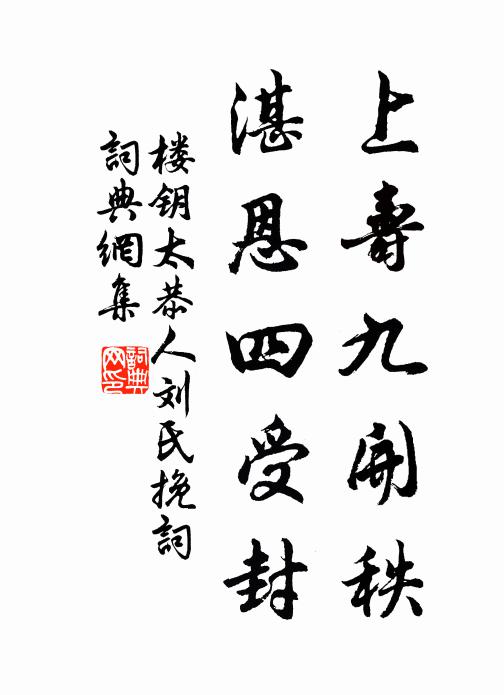 上壽九開秩
湛恩四受封
楼钥太恭人刘氏挽詞
詞典網集
詞典网印